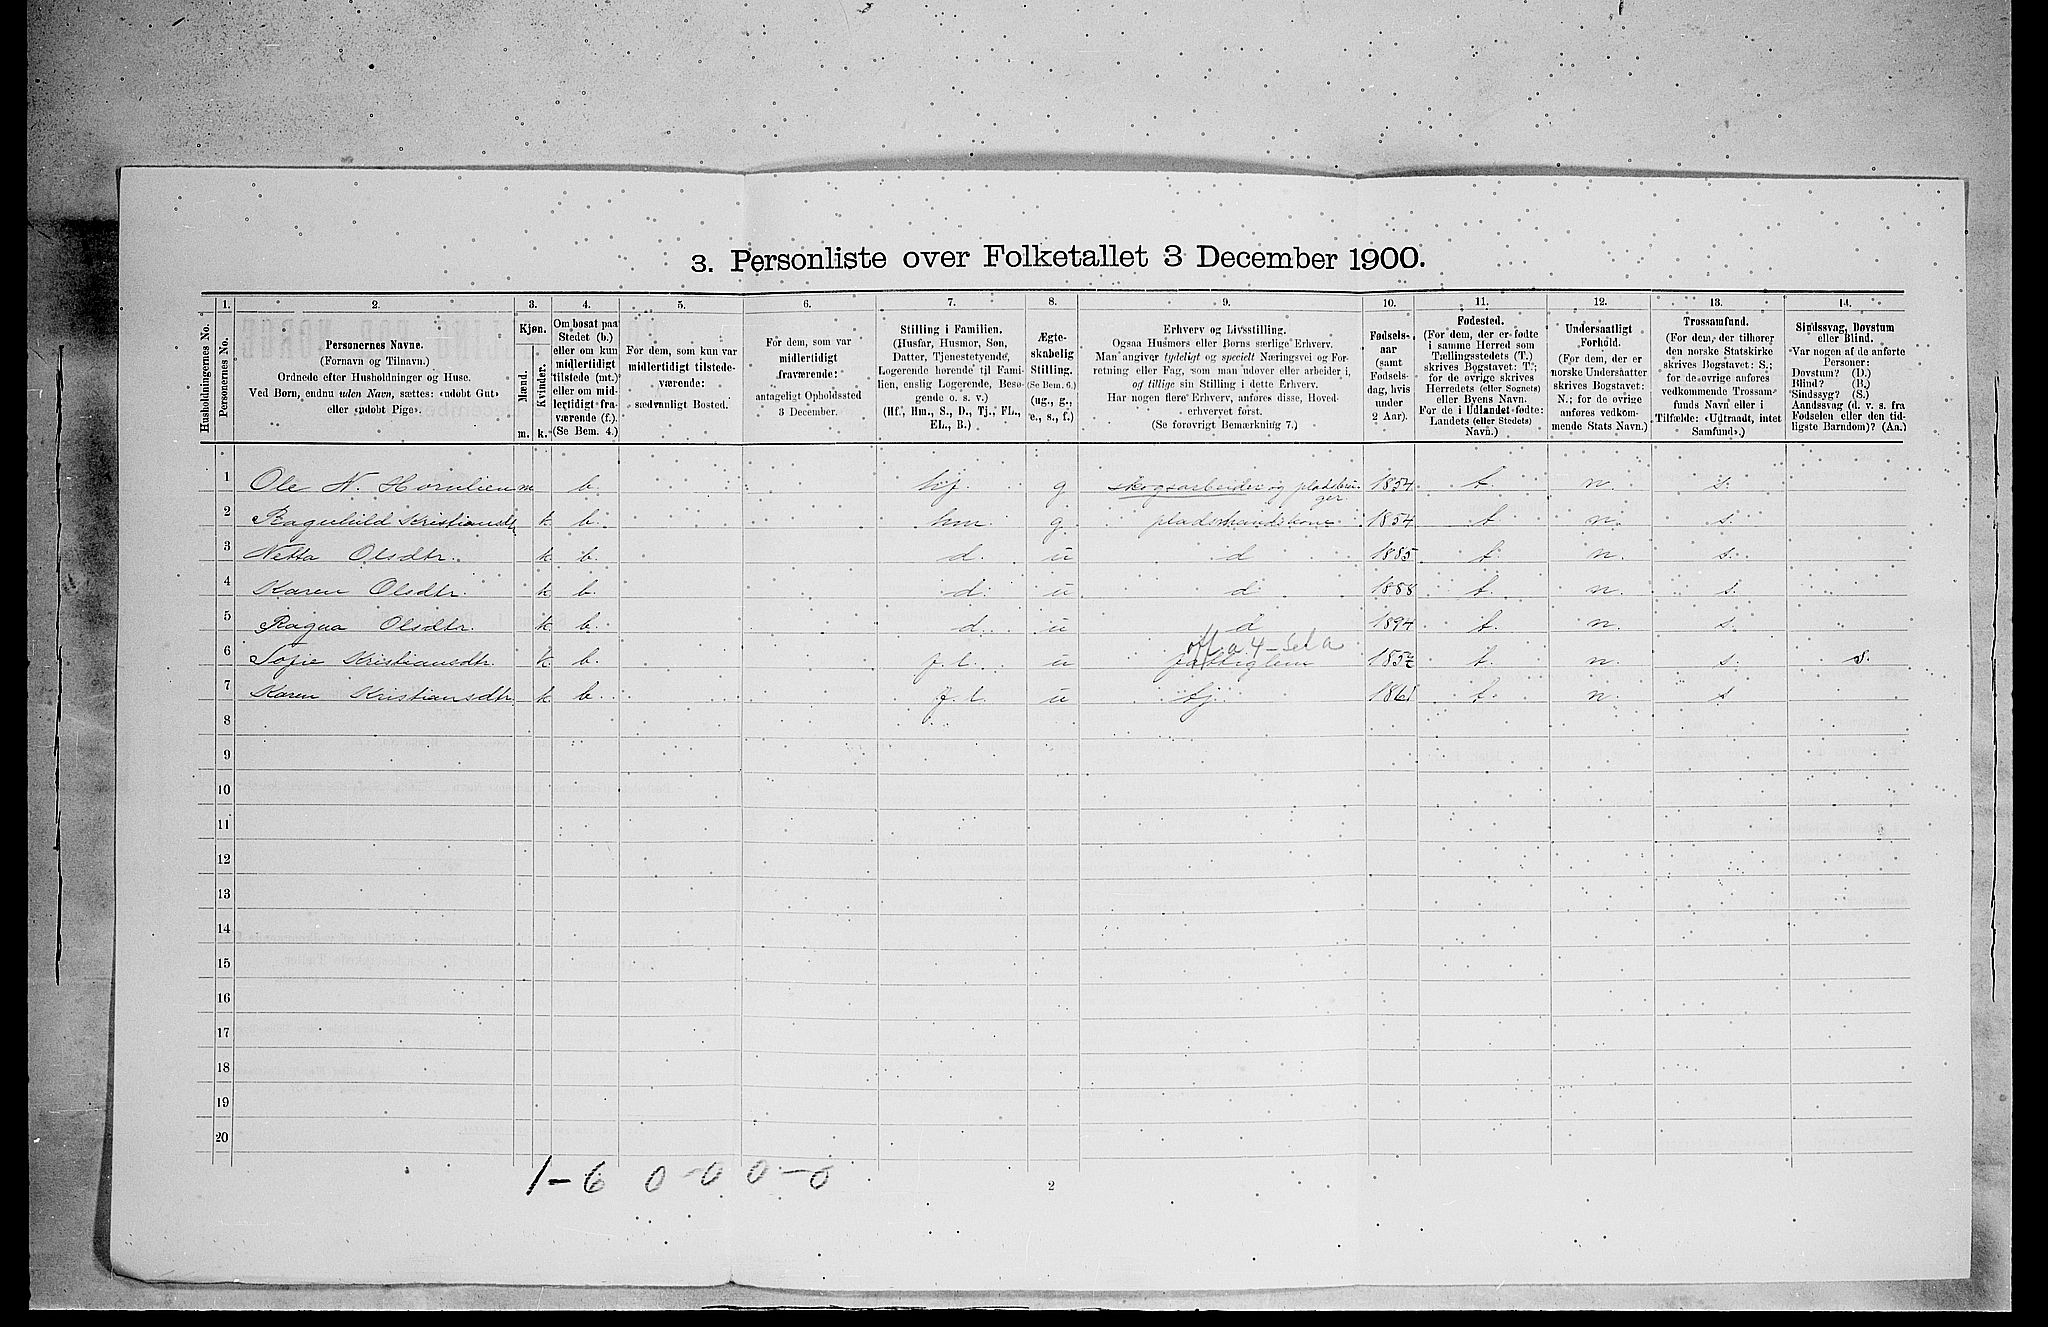 3. Personliste over Folketallet 3 December 1900.
Husholdningernes No.
1.
Personernes No.
2.
Personernes Navne.
(Fornavn og Tilnavn.)
Ordnede efter Husholdninger og Huse.
Ved Børn, endnu uden Navn, sættes: «udøbt Gut»
eller «udøbt Pige».
3.
Kjøn.
Mænd.
Kvinder.
m. k.
4.
Om bosat paa
Stedet (b.)
eller om kun
midlertidigt
tilstede (mt.)
eller om mid-
lertidigt fra-
værende (f.)
(Se Bem. 4.)
5.
For dem, som kun var
midlertidigt tilstede-
værende:
sædvanligt Bosted.
6.
For dem, som var
midlertidigt
fraværende:
antageligt Opholdssted
3 December.
7.
Stilling i Familien.
(Husfar, Husmor, Søn,
Datter, Tjenestetyende,
Logerende hørende til Fami-
lien, enslig Logerende, Besø-
gende o. s. v.)
(Hf., Hm., S., D., Tj., FL.,
EL., B.)
8.
Ægte-
skabelig
Stilling.
(Se Bem. 6.)
(ug., g.,
e., s., f.)
9.
Erhverv og Livsstilling.
Ogsaa Husmors eller Børns særlige Erhverv.
Man angiver tydeligt og specielt Næringsvei og For-
retning eller Fag, som man udøver eller arbeider i,
og tillige sin Stilling i dette Erhverv.
Har nogen flere Erhverv, anføres disse, Hoved-
erhvervet først.
(Se forøvrigt Bemærkning 7.)
10.
Fødsels-
aar
(samt
Fødsels-
dag, hvis
under
2 Aar).
11.
Fødested.
(For dem, der er fødte
i samme Herred som
Tællingsstedets (T.)
skrives Bogstavet: T.;
for de øvrige skrives
Herredets (eller Sognets)
eller Byens Navn.
For de i Udlandet fødte:
Landets (eller Stedets)
Navn.)
12.
Undersaatligt
Forhold.
(For dem, der er
norske Undersaatter
skrives Bogstavet:
N.; for de øvrige
anføres vedkom-
mende Stats Navn.)
13.
Trossamfund.
(For dem, der tilhører
den norske Statskirke
skrives Bogstavet: S.;
for de øvrige anføres
vedkommende Trossam-
funds Navn eller i
Tilfælde: «Udtraadt, intet
Samfund».)
14.
Sindssvag, Døvstum
eller Blind.
Var nogen af de anførte
Personer:
Døvstum? (D.)
Blind? (B.)
Sindssyg? (S.)
Aandssvag (d. v. s. fra
Fødselen eller den tid-
ligste Barndom)? (Aa.)
1 Ole N. Hornlien m b. hf. g skogsarbeider og pladsbru-
ger 1854 t. n. s.
2 Ragnhild Kristiansdtr k b. hm. g. pladsmandskone 1854 t n. s.
3 Netta Olsdtr. k b. d. u d 1885 t. n. s.
4 Karen Olsdtr. k b. d. u d 1888 t. n. s.
5 Ragna Olsdtr. k b. d. u d 1894 t. n. s.
6 Sofie Kristiansdtr. k b. f. l. u fattiglem t. n. s. s.
7 Karen Kristiansdtr. k b. f. l. u tj. 1861 t. n. s
8
9
10
11
12
13
14
15
16
17
18
19
20
1-6 0-0 0-0
2